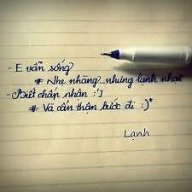 - E vẫn sống
# Nhẹ nhàng nhưng lạnh nhạt
- Biết chấp nhận :')
# Và cẩn thận bước đi :)*
Lạnh